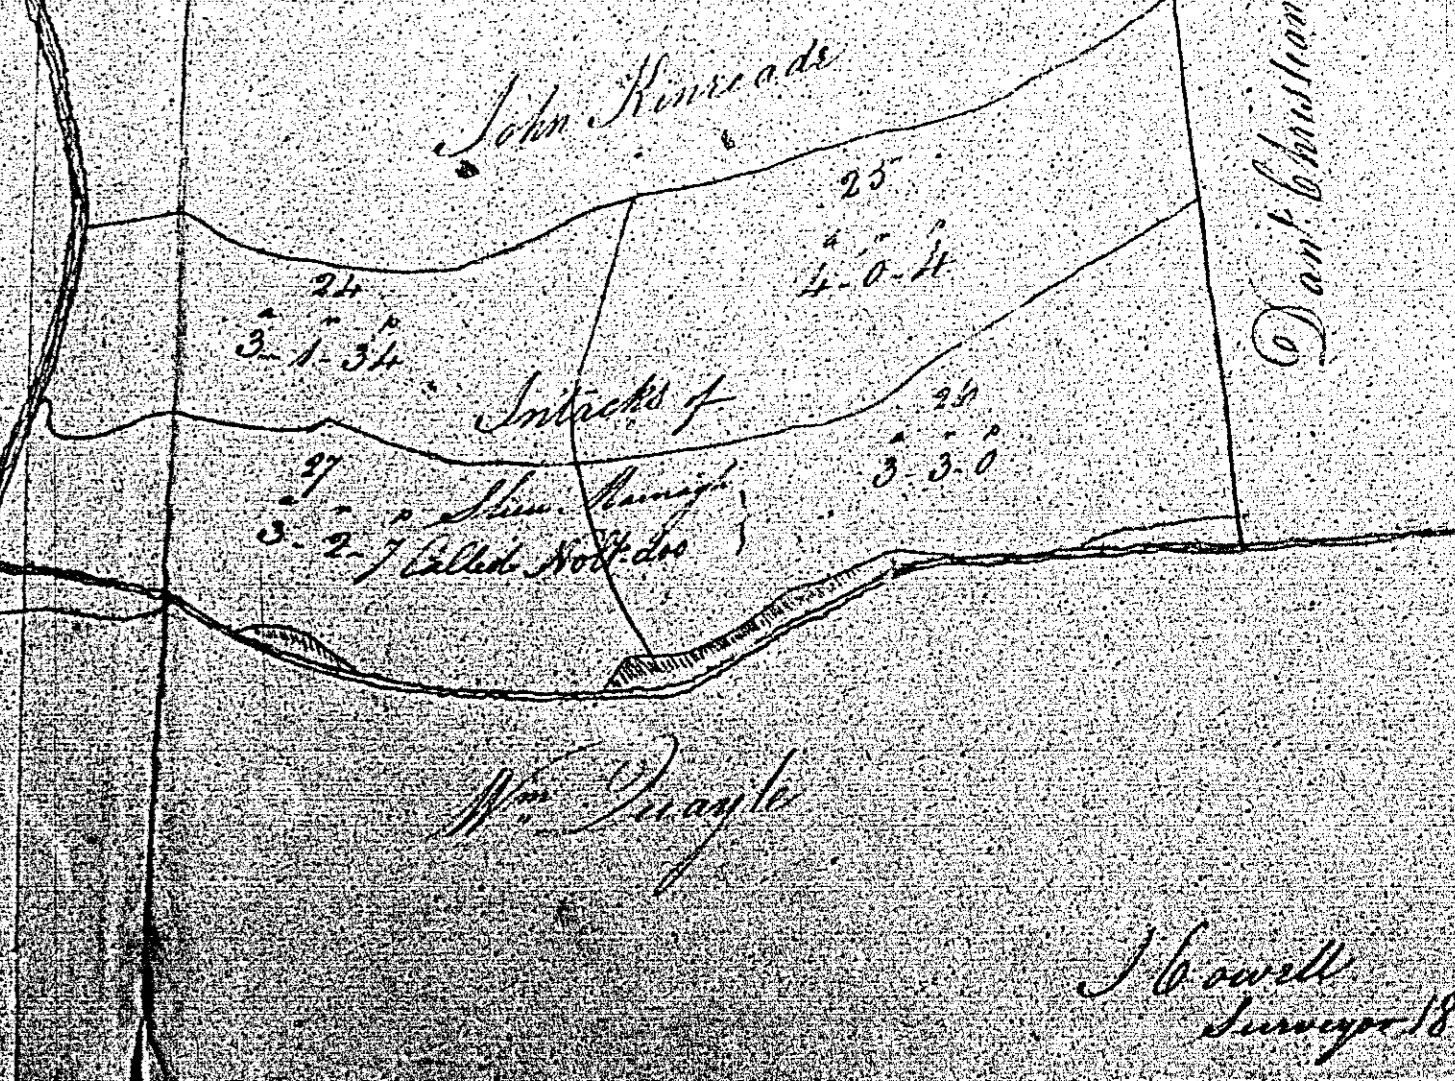 John Kinreade
Danl. Christian
25
a r p
4-0-4
24
a r p
3-1-34
Intacks of
26
a r p
3-3-0
27
a r p
3-2-7
Called
Wm Quayle
J Cowell
Surveyor 18